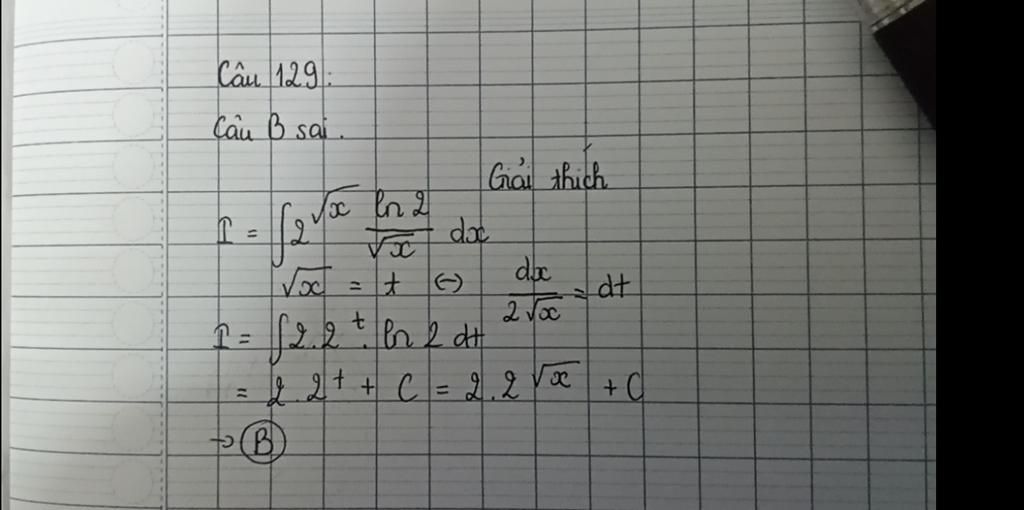 Câu 129:
Câu B sai.
Giải thích
I = ∫2^√x ln 2/√x dx
√x = t ⇔ dx/2√x = dt
I = ∫2.2^t. ln 2 dt
= 2.2^t + C = 2.2^√x + C
→ B